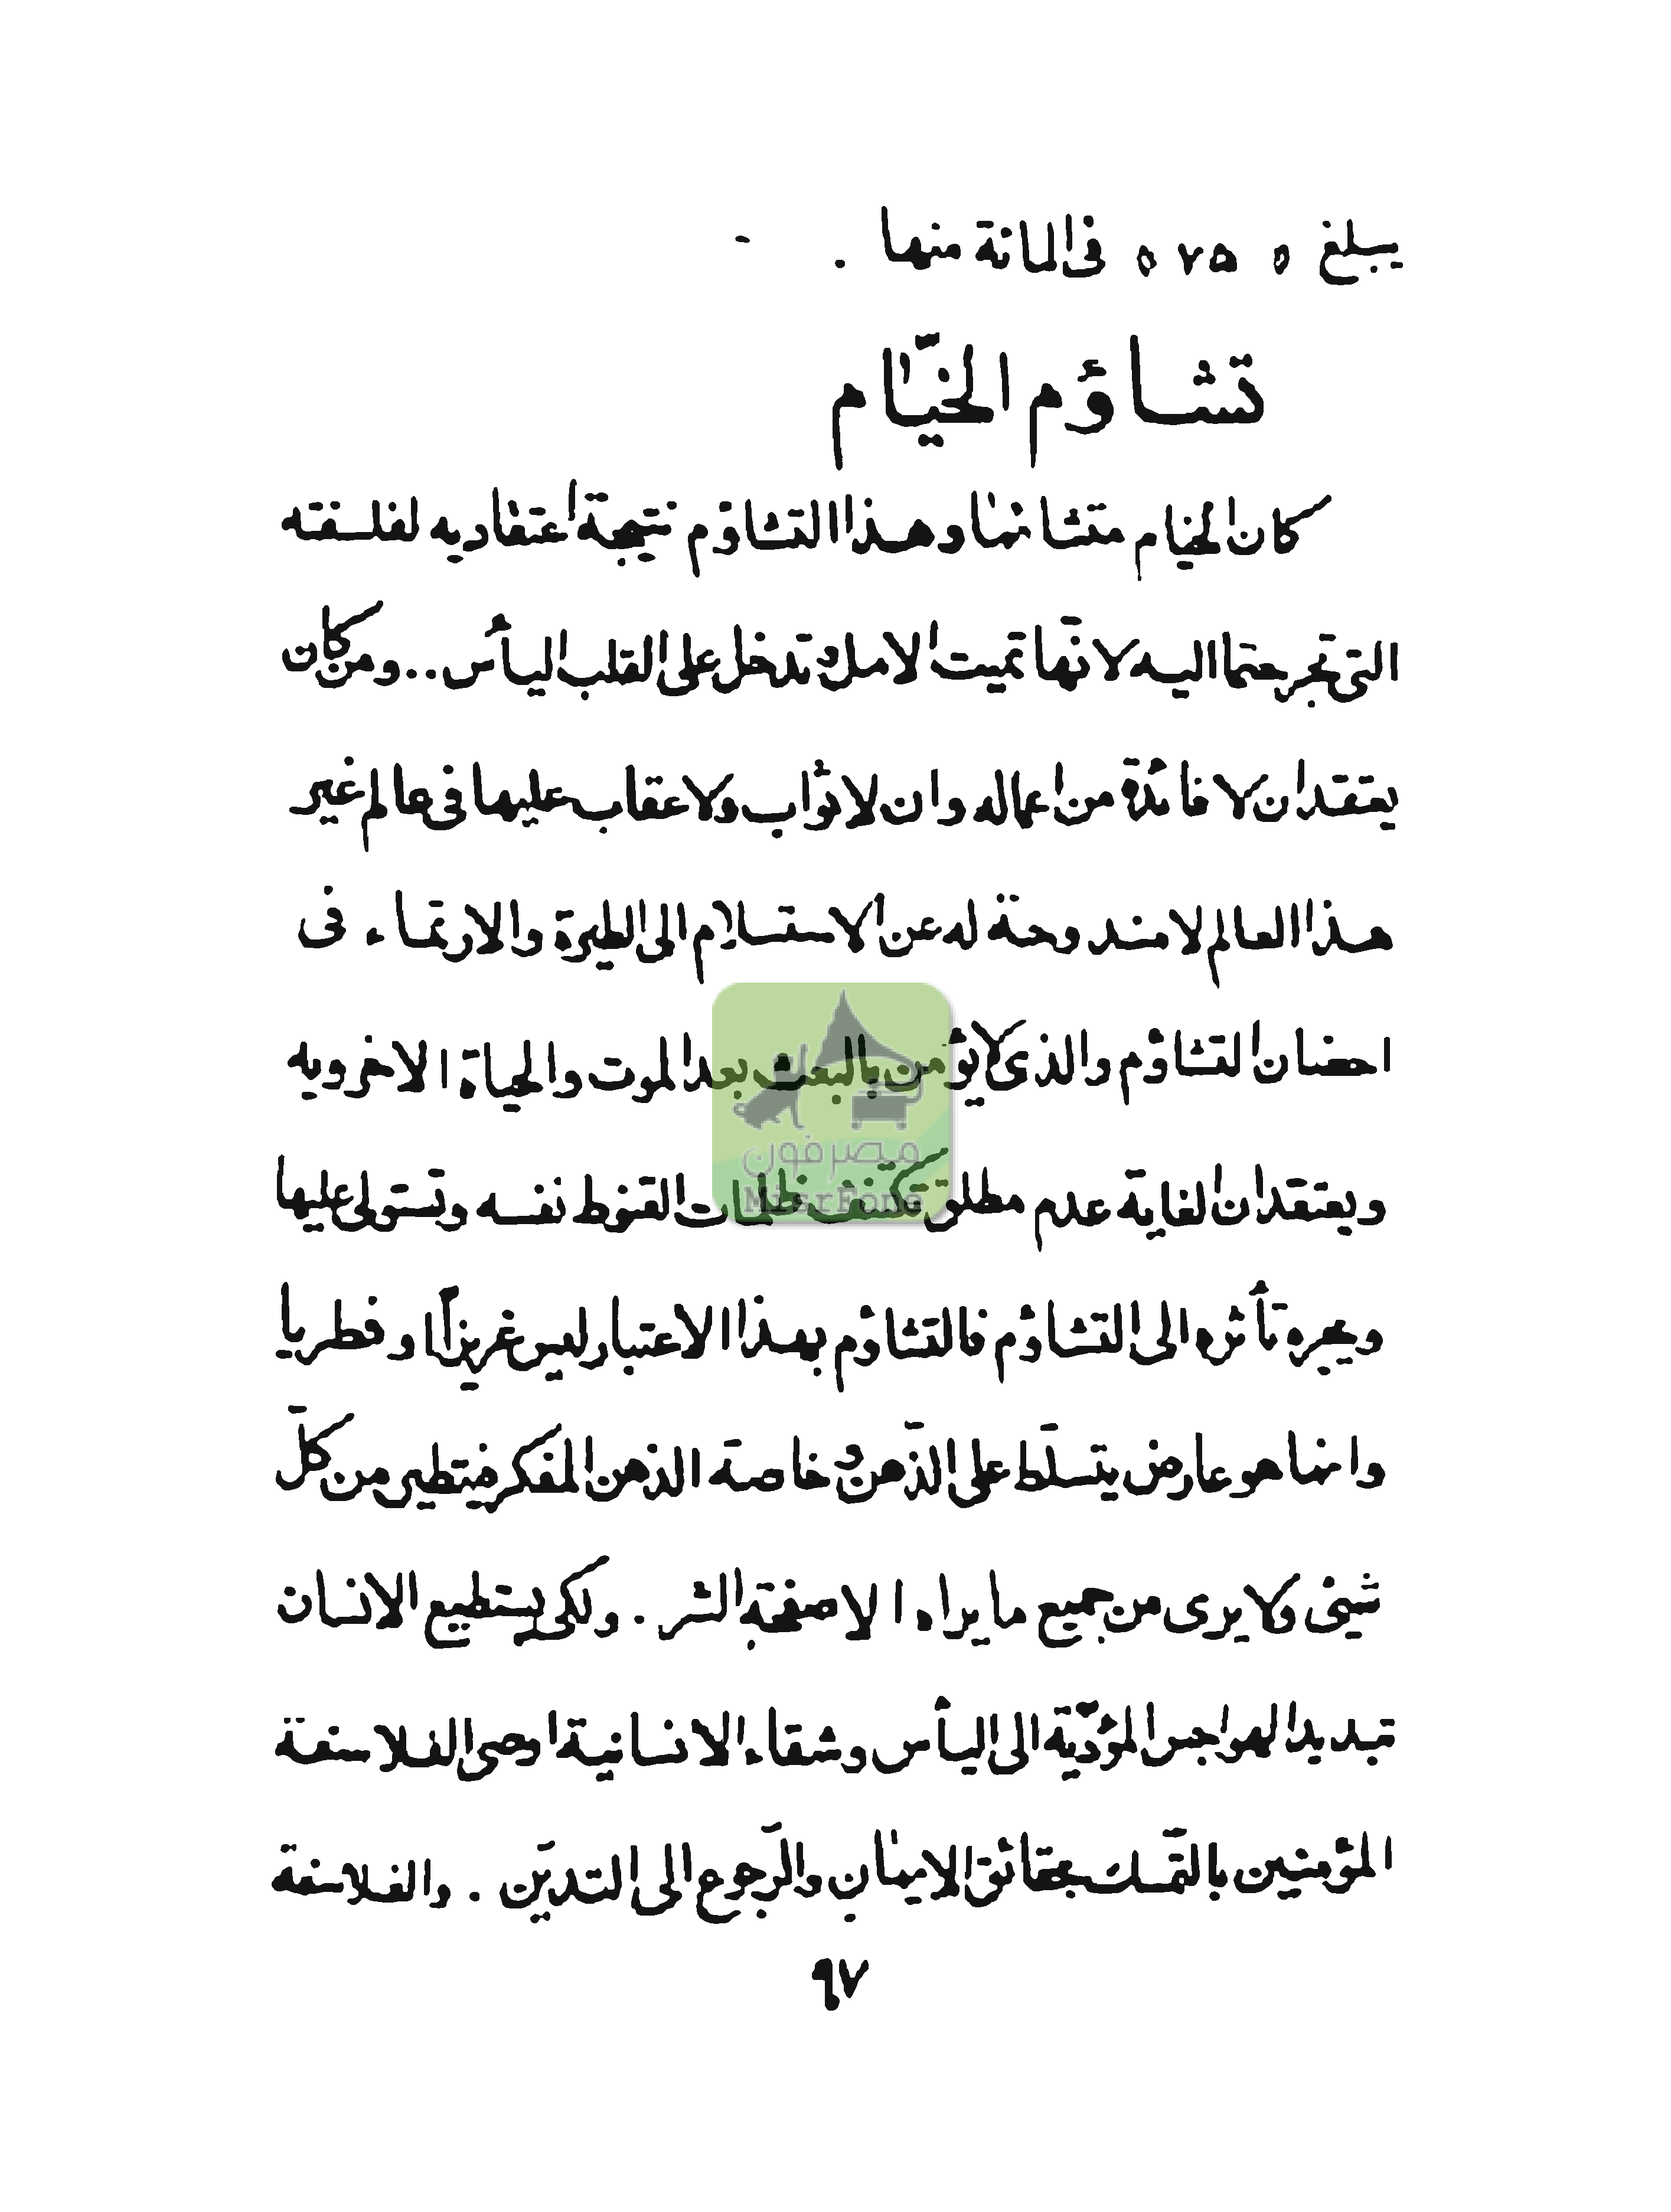 يبلغ ٥ ٧٥ ٥ فى المائة منها .
تشاؤم الخيّام
كان الخيام متشائما وهذا التشاؤم نتيجة اعتقاديه لفلسفته
التى تجر حتما اليه لانّها تميت الامل وتدخل على القلب اليأس .. ومن كان
يعتقد ان لا فائدة من اعماله وان لا ثواب ولا عقاب عليها فى عالم غير
هذا العالم لا مندوحة له عن الاستسلام الى الطيرة والارتماء فى
احضان التشاؤم والذى لا يؤمن بالبعث بعد الموت والحياة الاخرويه
ويعتقد ان الغاية عدم مطلق تكتنف ظلمات القنوط نفسه وتستولى عليها
ويجره تأثره الى التشاؤم فالتشاؤم بهذا الاعتبار ليس غريزيا او فطريا
وانما هو عارض يتسلّط على الذّهن وخاصة الذهن المفكر فيتطير من كلّ
شيئ ولا يرى من جميع ما يراه الا صفحة الشر . ولكى يستطيع الانسان
تبديد الهواجس المؤدّية الى اليأس وشقاء الانسانية اوصى الفلاسفة
المؤمنين بالتمّسك بحقائق الايمان والرّجوع الى التديّن . والفلاسفة
٩٧
مصرفون
MisrFone